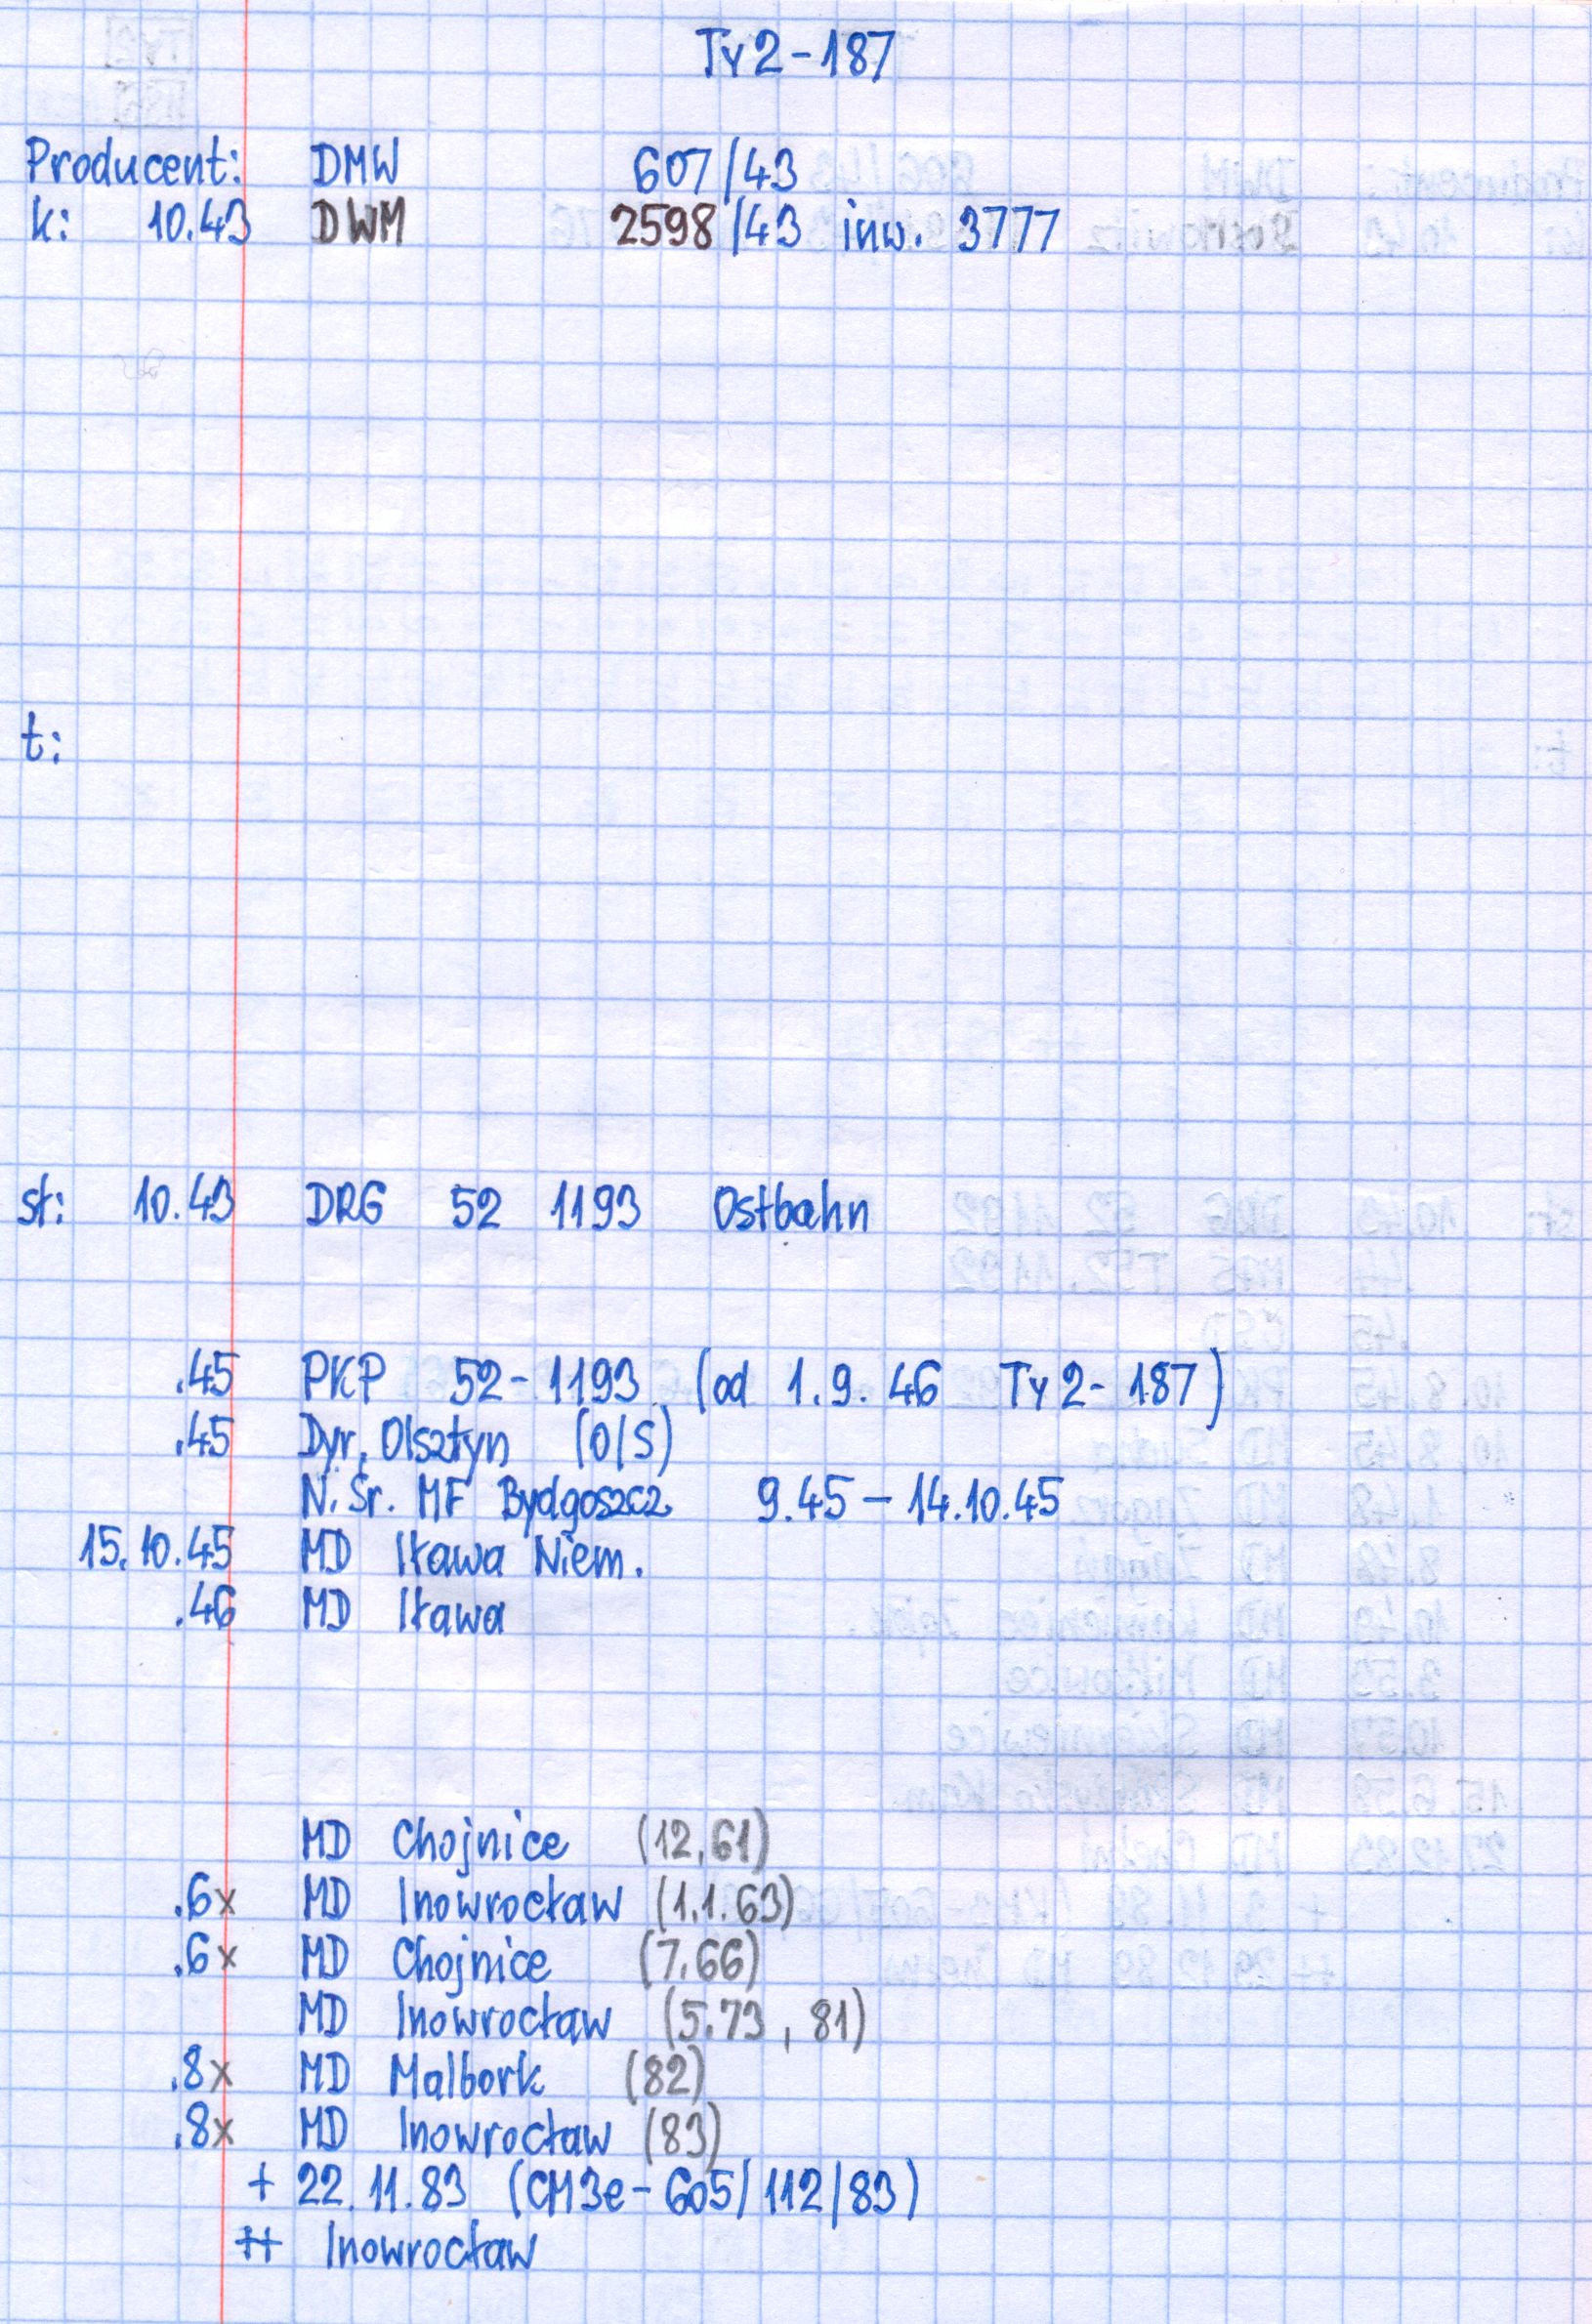 Ty2-187
Producent: DMW 607/43
k: 10.43 DWM 2598/43 inw. 3777
t:
st: 10.43 DRG 52 1193 Ostbahn
.45 PKP 52-1193 (od 1.9.46 Ty2-187)
.45 Dyr. Olsztyn (O/S)
N. Śr. MF Bydgoszcz 9.45 – 14.10.45
15.10.45 MD Iława Niem.
.46 MD Iława
MD Chojnice (12,61)
.6x MD Inowrocław (1.1.63)
.6x MD Chojnice (7.66)
MD Inowrocław (5.73, 81)
.8x MD Malbork (82)
.8x MD Inowrocław (83)
+ 22.11.83 (CM3e-605/112/83)
++ Inowrocław